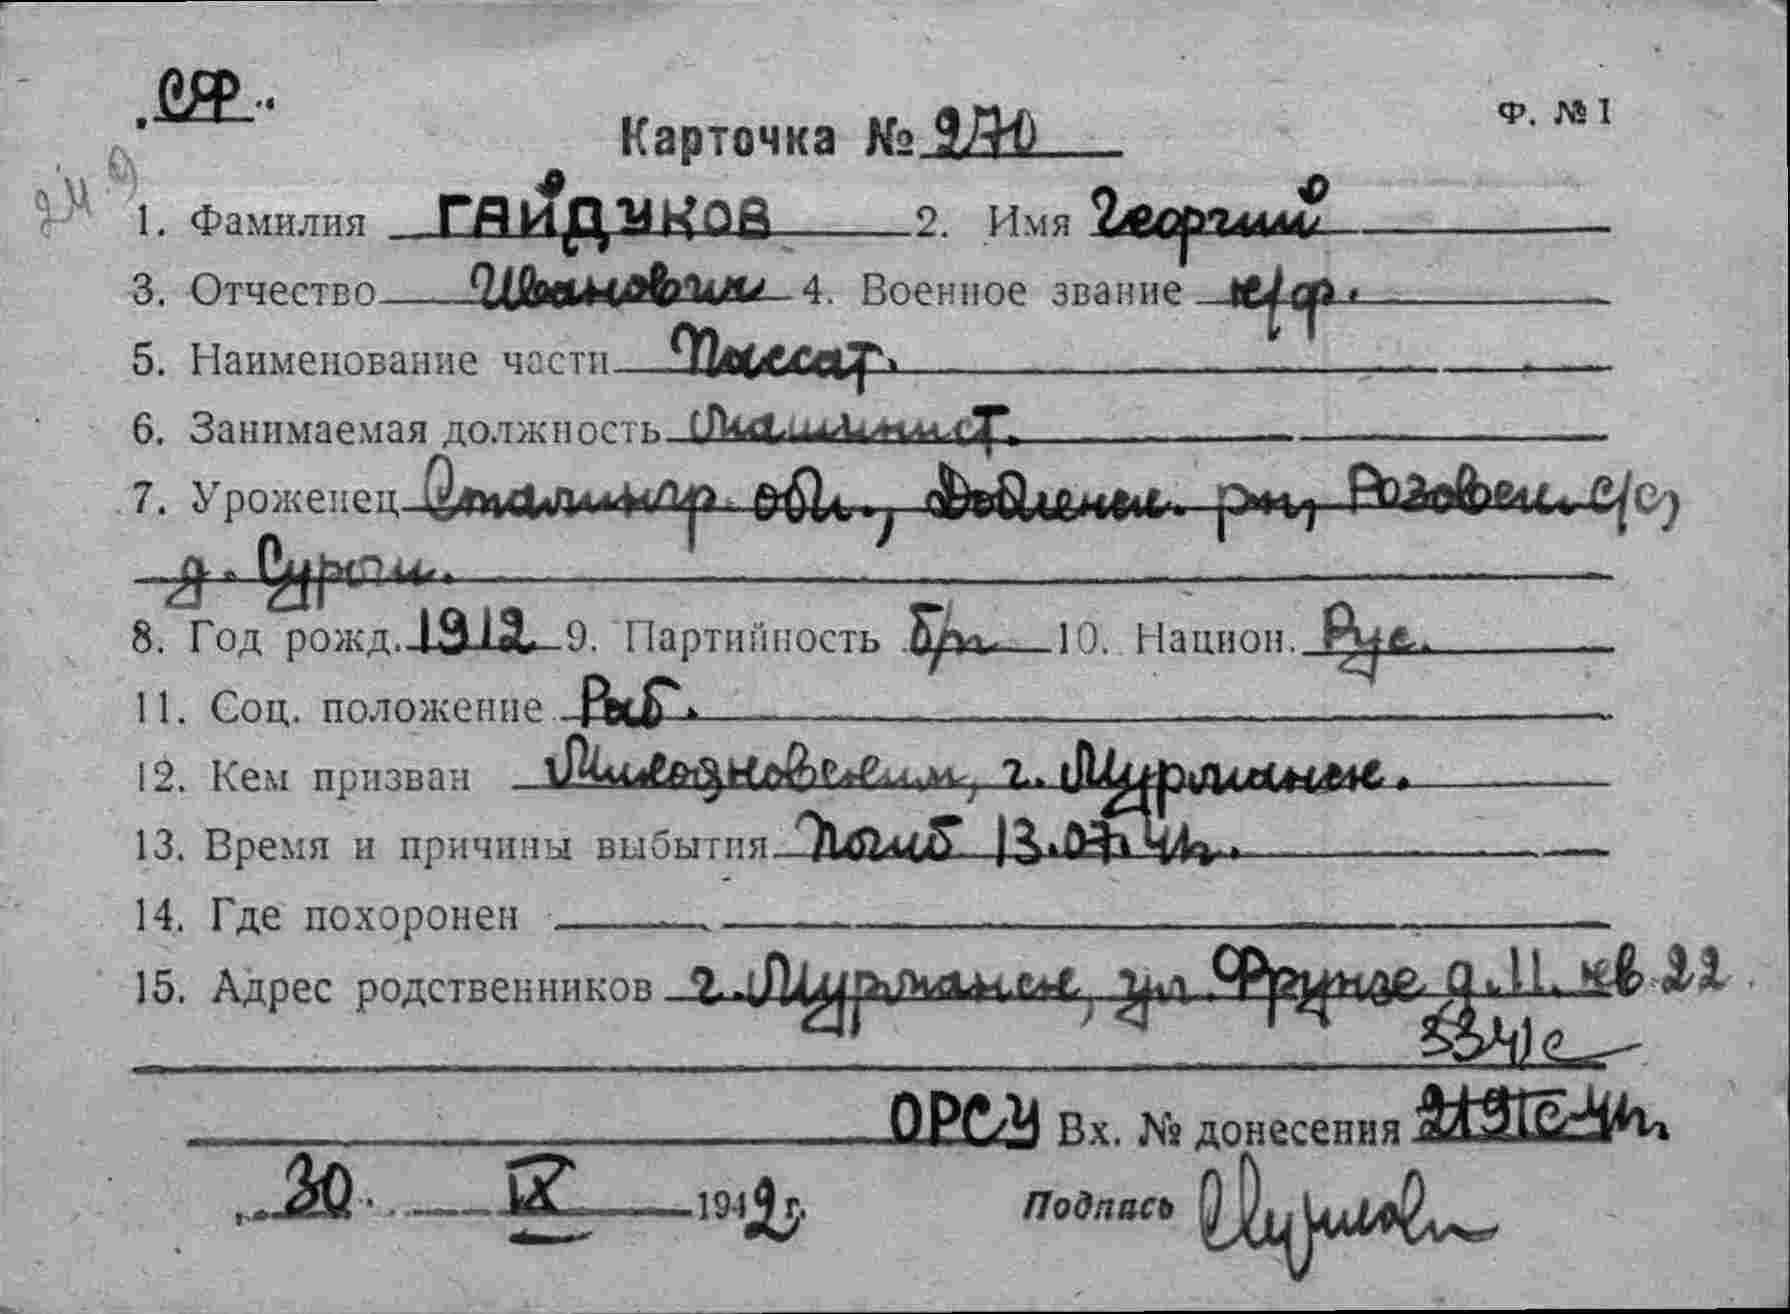 „СФ"
Ф. № 1
Карточка № 270
1. Фамилия ГАЙДУКОВ 2. Имя Георгий
3. Отчество Иванович 4. Военное звание к/ф.
5. Наименование части Пассат.
6. Занимаемая должность Машинист.
7. Уроженец Сталингр. обл., рн, Розовск. с/с,
д.
8. Год рожд. 1912 9. Партийность б/п 10. Национ. Рус.
11. Соц. положение Раб.
12. Кем призван г. Мурманск.
13. Время и причины выбытия Погиб 13.07.41г.
14. Где похоронен
15. Адрес родственников г. Мурманск, ул. Фрунзе д. 11. кв. 22
3341с
ОРСУ Вх. № донесения 2191с-41г.
„30" IX 1942 г. Подпись